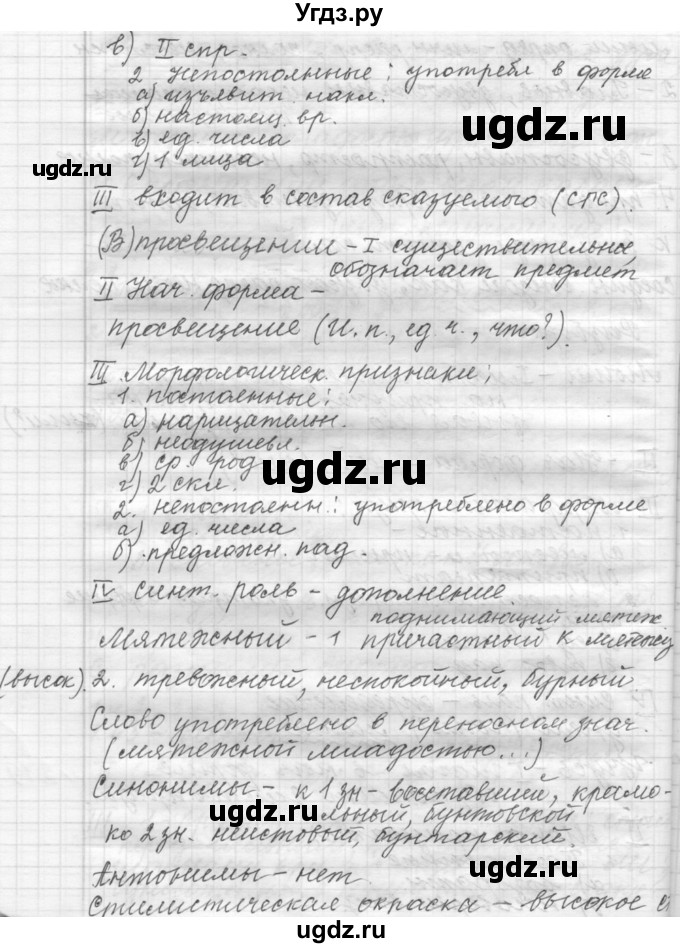 Угдз.ру
в) II спр.
2 Непостоянные: употребл в форме
а) изъявит накл.
б) настоящ. вр.
в) ед. числа
г) 1 лица
ugdz.ru
ugdz.ru
III входит в состав сказуемого (СГС).
(В) просвещении – I существительн,
обозначает предмет
II Нач. форма –
просвещение (И.п., ед. ч., что?).
III Морфологическ. признаки:
1. постоянные:
а) нарицательн.
б) неодушевл.
в) ср. род
г) 2 скл.
ugdz.ru
2. непостоянн.: употреблено в форме
а) ед. числа
б) предложн. пад.
ugdz.ru
IV синт. роль – дополнение.
поднимающий мятеж
Мятежный – 1 причастный к мятежу
(высок). 2. тревожный, неспокойный, бурный
Слово употреблено в переносном знач.
(мятежной младостью...)
Синонимы – к 1 зн – восставший, крамо-
льный, бунтовской
ugdz.ru
ugdz.ru
ко 2 зн. неистовый, бунтарский.
Антонимы – нет.
Стилистическая окраска – высокое